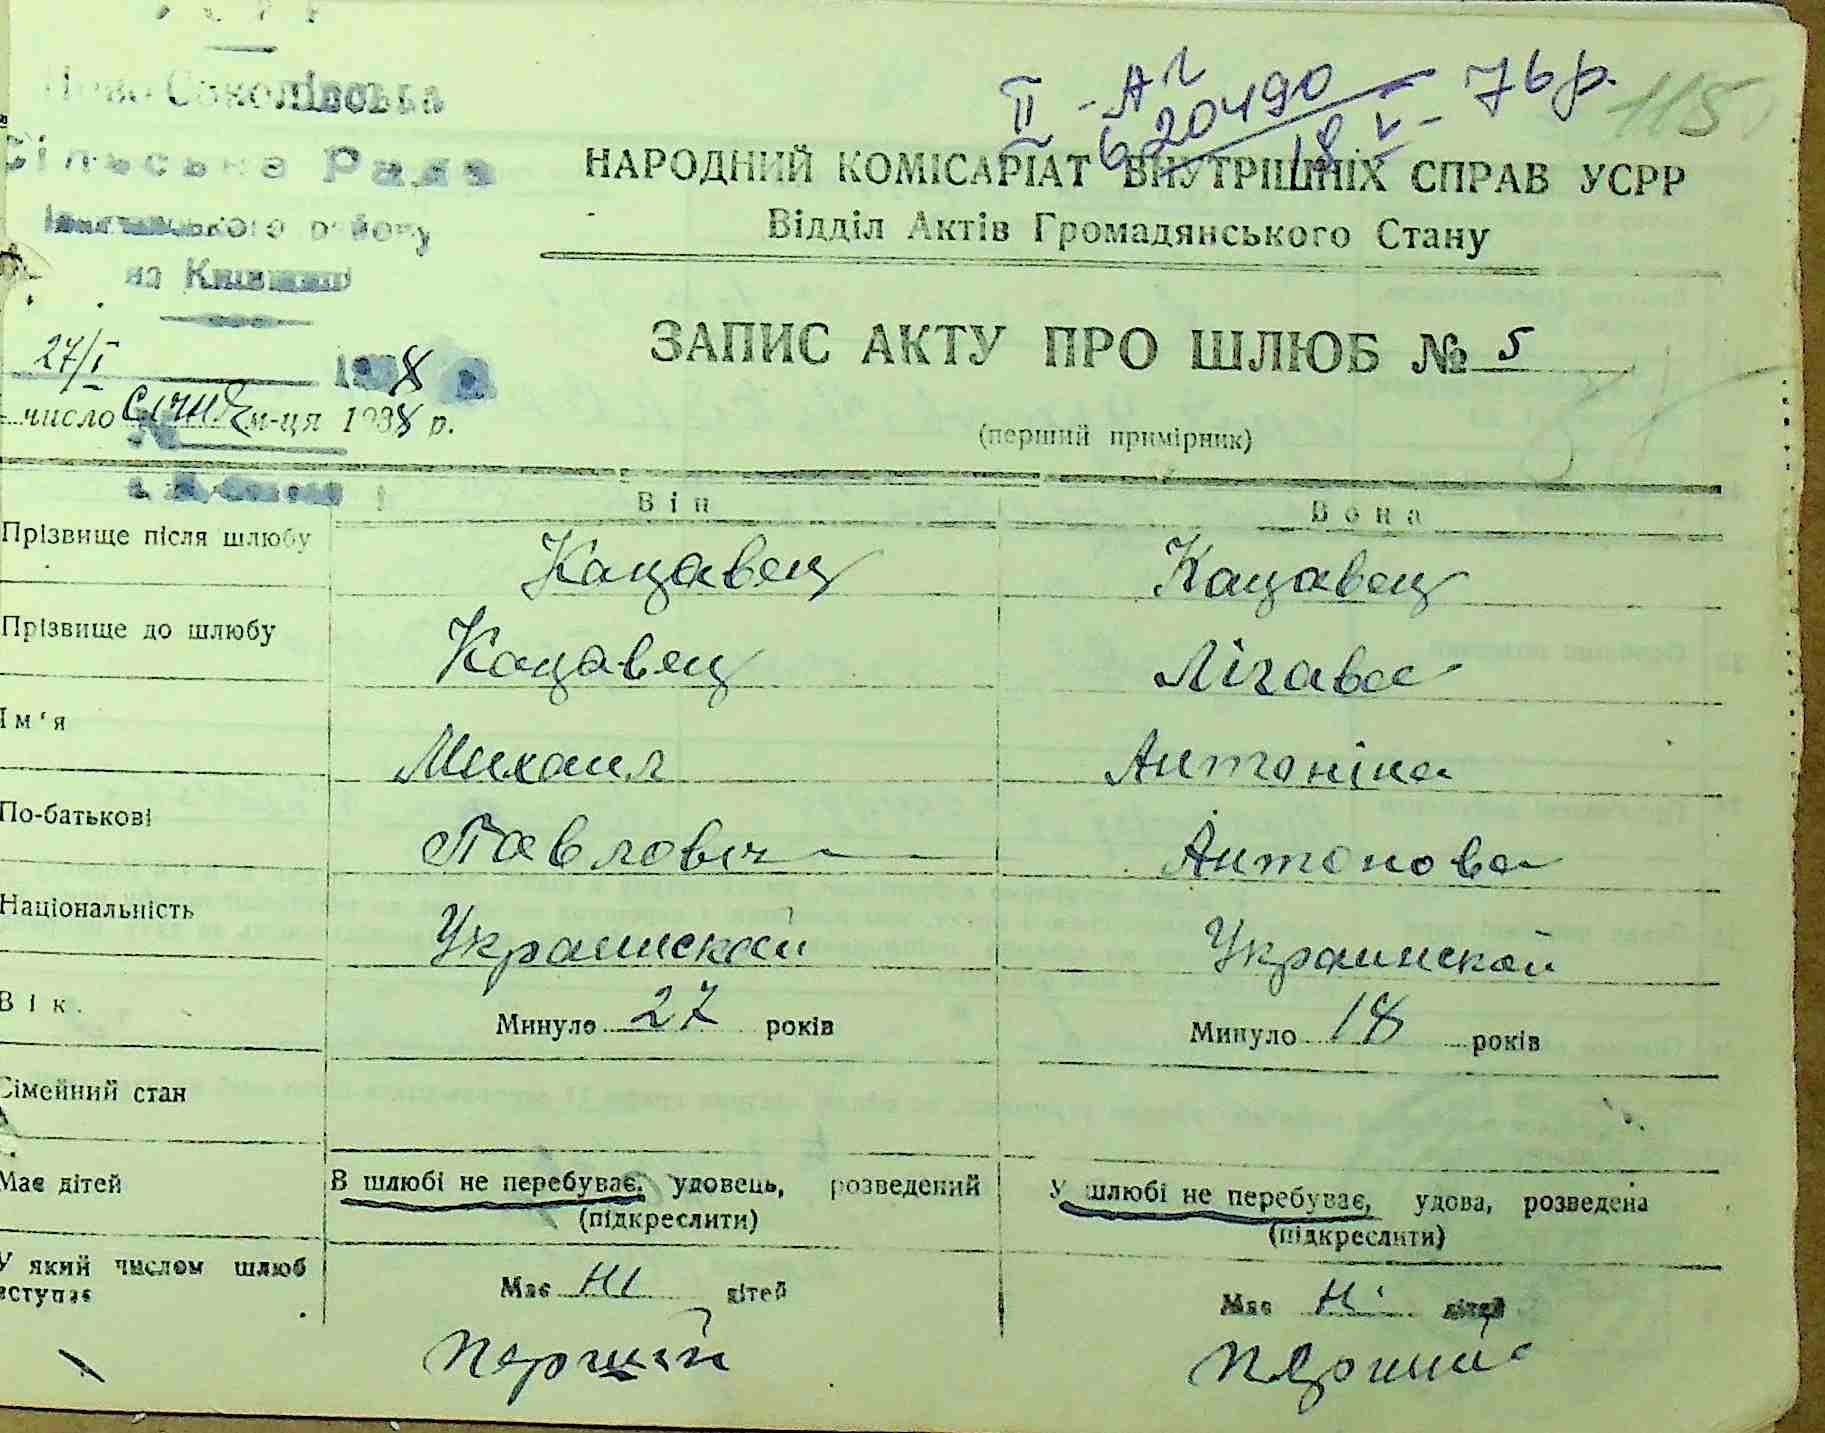 II - А Л
620490 18 V - 76 р. 115
Ново-Соколівська
Сільська Рада
району
на Київщині
27/I 1938 р.
число січня м-ця 1938 р.
№
НАРОДНИЙ КОМІСАРІАТ ВНУТРІШНІХ СПРАВ УСРР
Відділ Актів Громадянського Стану
ЗАПИС АКТУ ПРО ШЛЮБ № 5
(перший примірник)
Він Вона
Прізвище після шлюбу Кацавец Кацавец
Прізвище до шлюбу Кацавец Лігава
Ім'я Михаил Антоніна
По-батькові Павлович Антонова
Національність Украинской Украинской
Вік. Минуло 27 років Минуло 18 років
Сімейний стан
Має дітей В шлюбі не перебуває, удовець, розведений У шлюбі не перебуває, удова, розведена
(підкреслити) (підкреслити)
У який числом шлюб вступає Має ні дітей Має ні дітей
першій першій